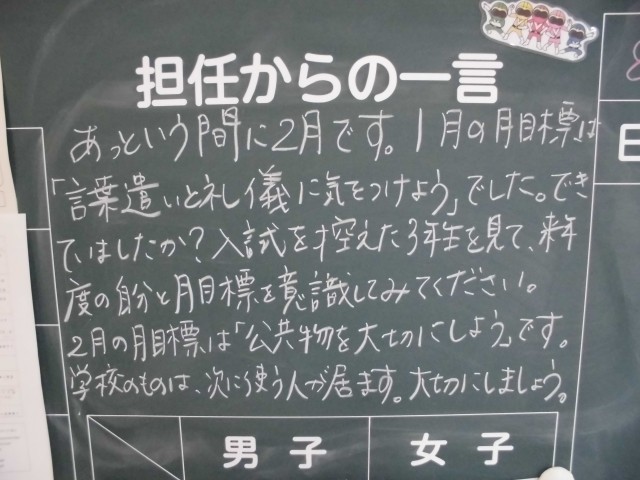 担任からの一言
あっという間に2月です。1月の月目標は
「言葉遣いと礼儀に気をつけよう」でした。でき
ていましたか?入試を控えた3年生を見て、来年
度の自分と月目標を意識してみてください。
2月の月目標は「公共物を大切にしよう」です。
学校のものは、次に使う人が居ます。大切にしましょう。
男子
女子
日